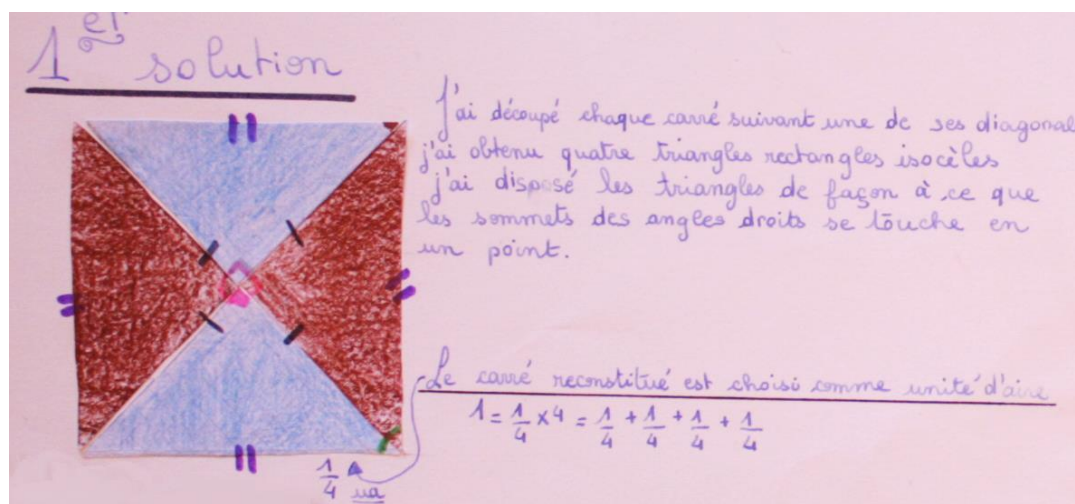 1er solution
J'ai découpé chaque carré suivant une de ses diagonal
j'ai obtenu quatre triangles rectangles isocèles
j'ai disposé les triangles de façon à ce que
les sommets des angles droits se touche en
un point.
Le carré reconstitué est choisi comme unité d'aire
1 = 1/4 × 4 = 1/4 + 1/4 + 1/4 + 1/4
1/4 ua